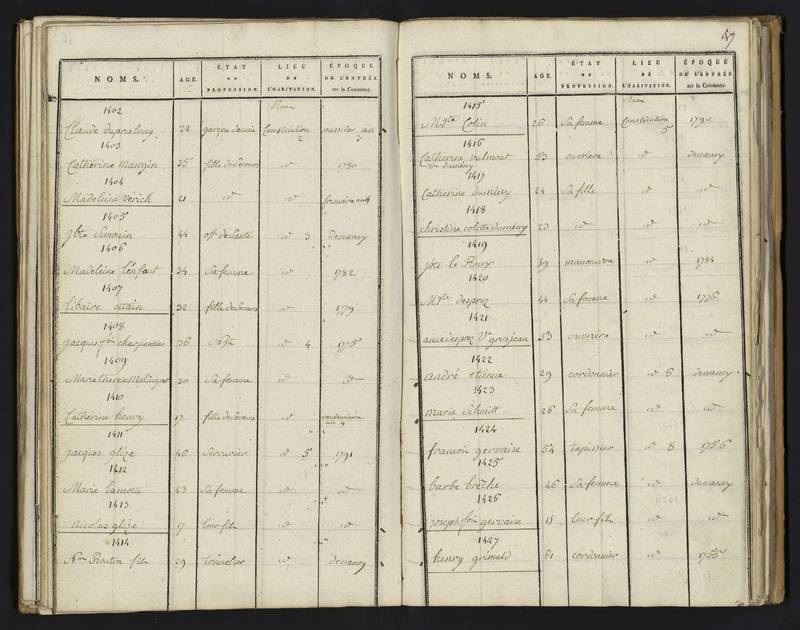 NOMS. AGE. ÉTAT OU PROFESSION. LIEU DE L'HABITATION. ÉPOQUE DE L'ENTRÉE sur la Commune.
1402
Claude Dupralony 32 Constitution 2 messidor an 3
1403
Catherine Mangin 35 fille de Secours id 1780
1404
Madeleine Verich 21 id id
1405
Simonin 44 off. de Santé id 3 Denancy
1406
Madeleine Lenfant 34 Sa femme id 1782
1407
Libaire 32 fille de Secours id 1779
1408
jacques charpentier 36 id 4 1775
1409
Marie Therese 30 Sa femme id id
1410
Catherine henry 17 fille de Secours id vendémiaire an 4
1411
jacques glize 46 Serrurier id 5 1791
1412
Marie lamotte 43 Sa femme id id
1413
Nicolas glize 17 leur fils id id
1414
Routon fils 29 tonnelier id Denancy
59
NOMS. AGE. ÉTAT OU PROFESSION. LIEU DE L'HABITATION. ÉPOQUE DE L'ENTRÉE sur la Commune.
1415
Mgte Colin 26 Sa femme Constitution 5 1790
1416
Catherine Vulmont ve dumény 53 ouvriere id Denancy
1417
Catherine dumény 24 Sa fille id id
1418
christine colette dumény id id id
1419
39 manoeuvre id 1784
1420
Mgte desprez 44 Sa femme id 1776
1421
anne desprez Ve grosjean 53 ouvriere id id
1422
andré etienne 29 cordonnier id 6 Denancy
1423
marie Schmitt 26 Sa femme id id
1424
francois gervaise 54 tapissier id 8
1425
barbe brêche 46 Sa femme id Denancy
1426
joseph fois gervaise 18 leur fils id id
1427
henry grimald 61 cordonnier id